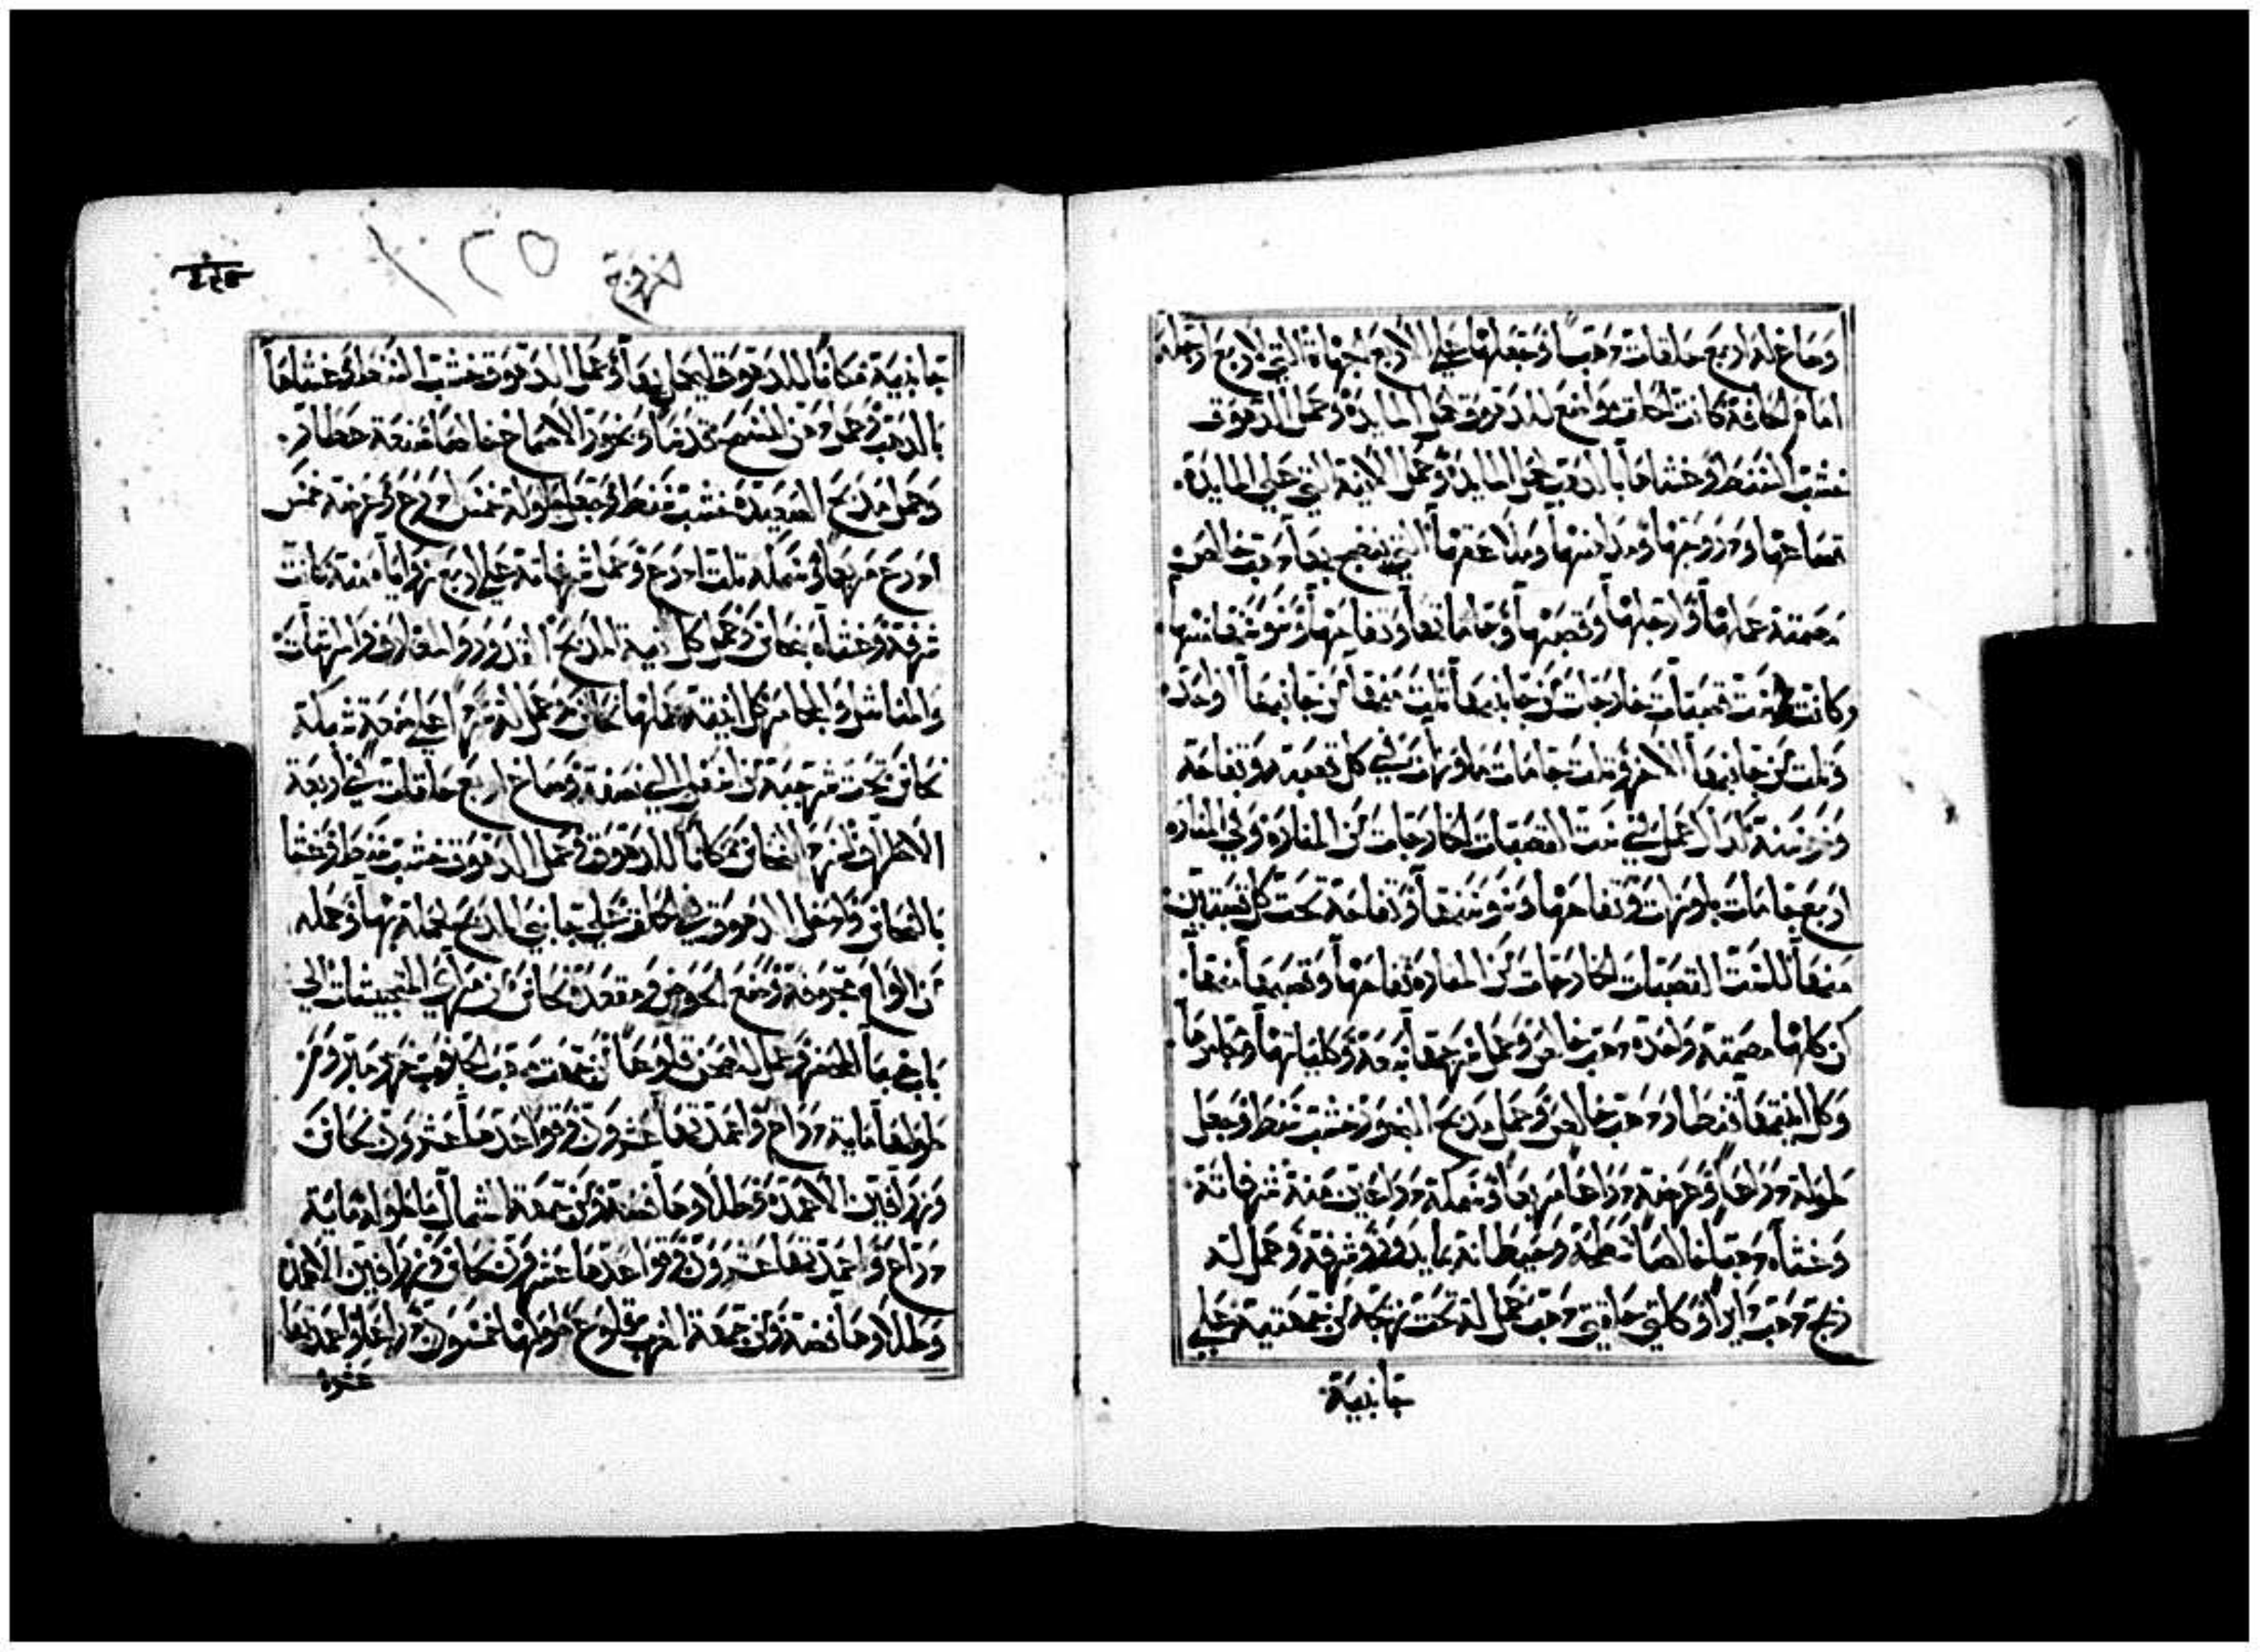 وصاغ له اربع حلقات ذهب وجعلها علي الاربع جهاة التي لاربع ارجله
امام الحافة كانت الحلق مواضع للدهوق لحمل المايدة وعمل الدهوق
خشب الشنط وغشاها بالذهب لحمل المايدة وعمل الانية التي علي المايدة
قصاعها ودروجها ومداهنها وملاعقها التي ينضح بها ذهب خالص
مصمتة عملها وارجلها وقصبها وجاماتها وتفاحها وسوسنها منها
وكانت ست قصبات خارجات من جانبيها ثلث منها من جانبها الواحد
وثلث من جانبها الاخر وثلث جامات ملوزات في كل قصبة وتفاحة
وسوسنة كذا عمل في ست القصبات الخارجات من المنارة وفي المنارة
اربع جامات ملوزات وتفاحها وسوسنها وتفاحة تحت كل قصبتين
منها للست القصبات الخارجات من المنارة تفاحها وقصبها منها
كن كلها مصمتة واحدة ذهب خالص وعمل سرجها سبعة وكلباتها ومجامرها
وكل انيتها قنطار ذهب خالص وعمل مدبح البخور خشب شنط وجعل
طوله دراعا وعرضه دراعا مربعا وسمكه دراعين منه شرفاته
وغشاه ذهبا خالصا سطحه وحيطانه بما يدور وشرفه وعمل له
زيج ذهب دايرا وكلتي حلقتي ذهب عمل له تحت زيجه من جهتيه علي
جانبيه
جانبيه مكانا للدهوق ليحمل بها وعمل الدهوق خشب الشنط وغشاها
بالذهب وعمل دهن المسح قدسا وبخور الاصماغ خالصا صنعة عطار
وعمل مدبح الصعيدة خشب شنط وجعل طوله خمس ادرع وعرضه خمس
ادرع مربعا وسمكه ثلث ادرع وعمل شرفاته علي اربع زواياه منه كانت
شرفه وغشاه بنحاس وعمل كل انية المدبح القدور والمغارف والمرشات
والمناشل والمجامر كل انيته عملها نحاس وعمل له سردا علي صنعة شبكة
نحاس تحت شرجبه من اسفل الي نصفه وصاغ اربع حلقات في اربعة
الاطراف لسرد النحاس مكانا للدهوق وعمل الدهوق خشب شنط وغشا
بالنحاس وادخل الدهوق في الحلق علي جانبي المدبح لحمله بها وعمله
من الواح مجوفة وصنع الحوض ومقعده نحاس من مراي المتجيشات الي
باب خبا المحضر وعمل له الصحن قلوعا من جهة مهب الجنوب عشر مبرومز
طولها ماية دراع واعمدتها عشرون وقواعدها عشرون نحاس
وزرافين الاعمدة وطلاوها فضة ومن جهة الشمال ما طوله ماية
دراع واعمدتها عشرون وقواعدها عشرون نحاس وزرافين الاعمدة
وطلاوها فضة ومن جهة الغرب قلوع طولها خمسون دراعا واعمدتها
عشرة